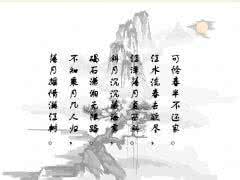 可怜春半不还家。
江水流春去欲尽，
江潭落月复西斜。
斜月沉沉藏海雾，
碣石潇湘无限路。
不知乘月几人归，
落月摇情满江树。